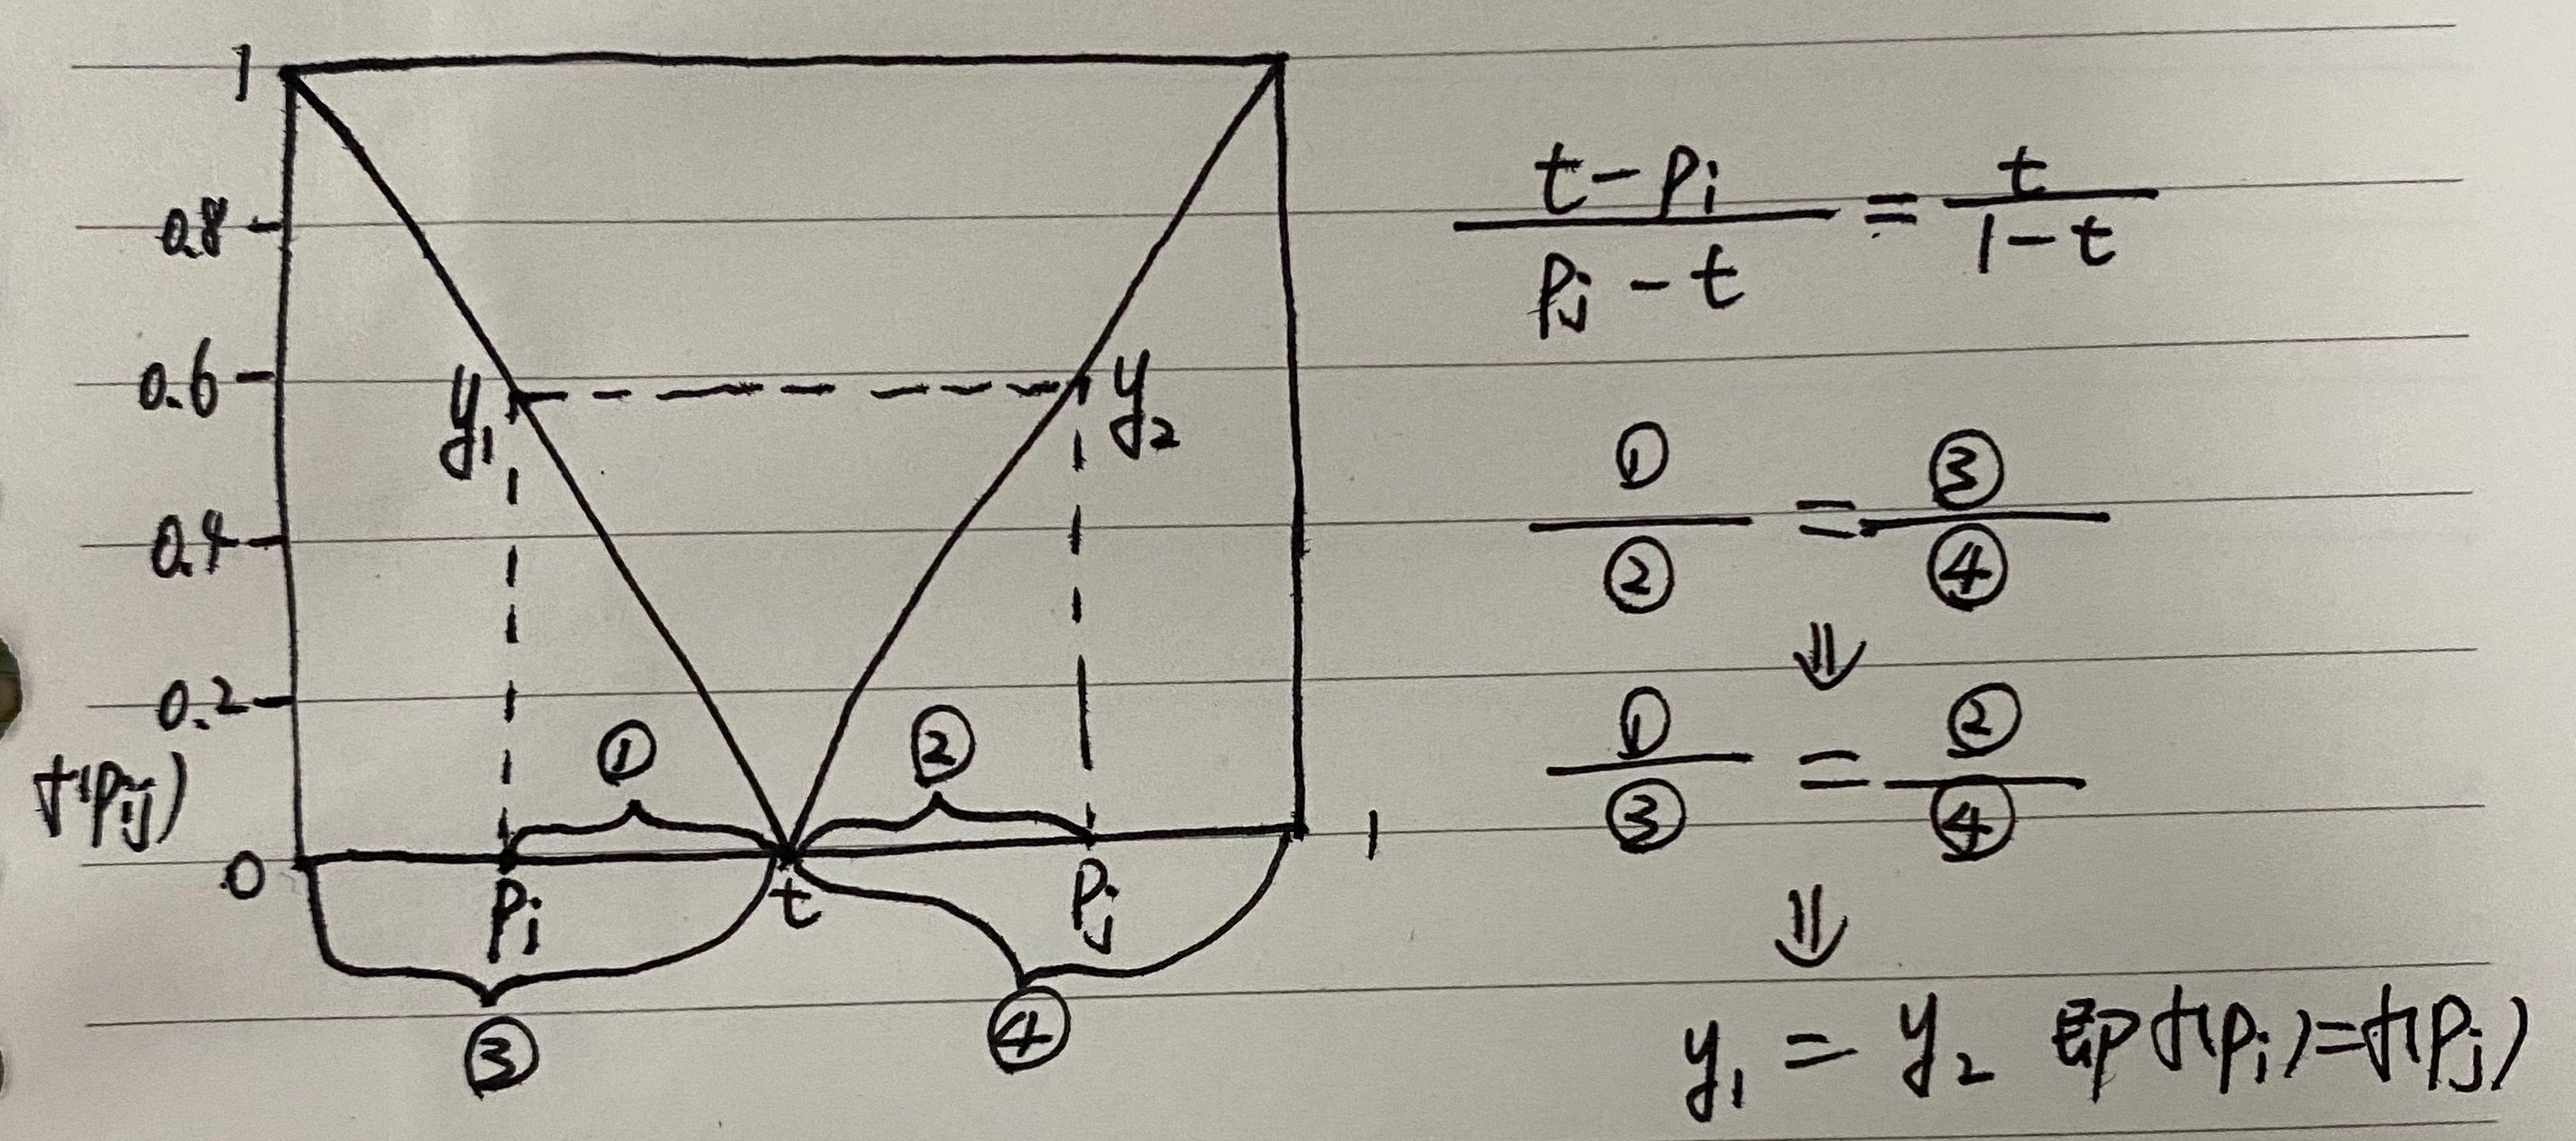 1
0.8
0.6
0.4
0.2
f(pij)
0
y₁
y₂
①
②
pi
t
pj
1
③
④
(t-pi)/(pj-t) = t/(1-t)
①/② = ③/④
⇓
①/③ = ②/④
⇓
y₁ = y₂ 即f(pi)=f(pj)